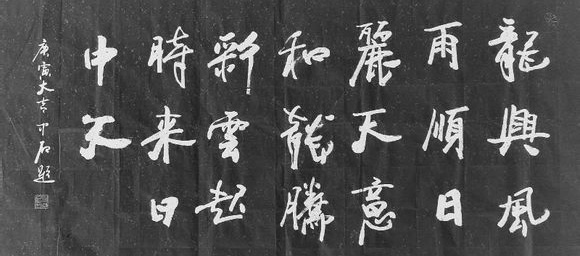 龍興風
雨順日
麗天意
和龍騰
彩雲起
時来日
中天
庚寅大吉中石題